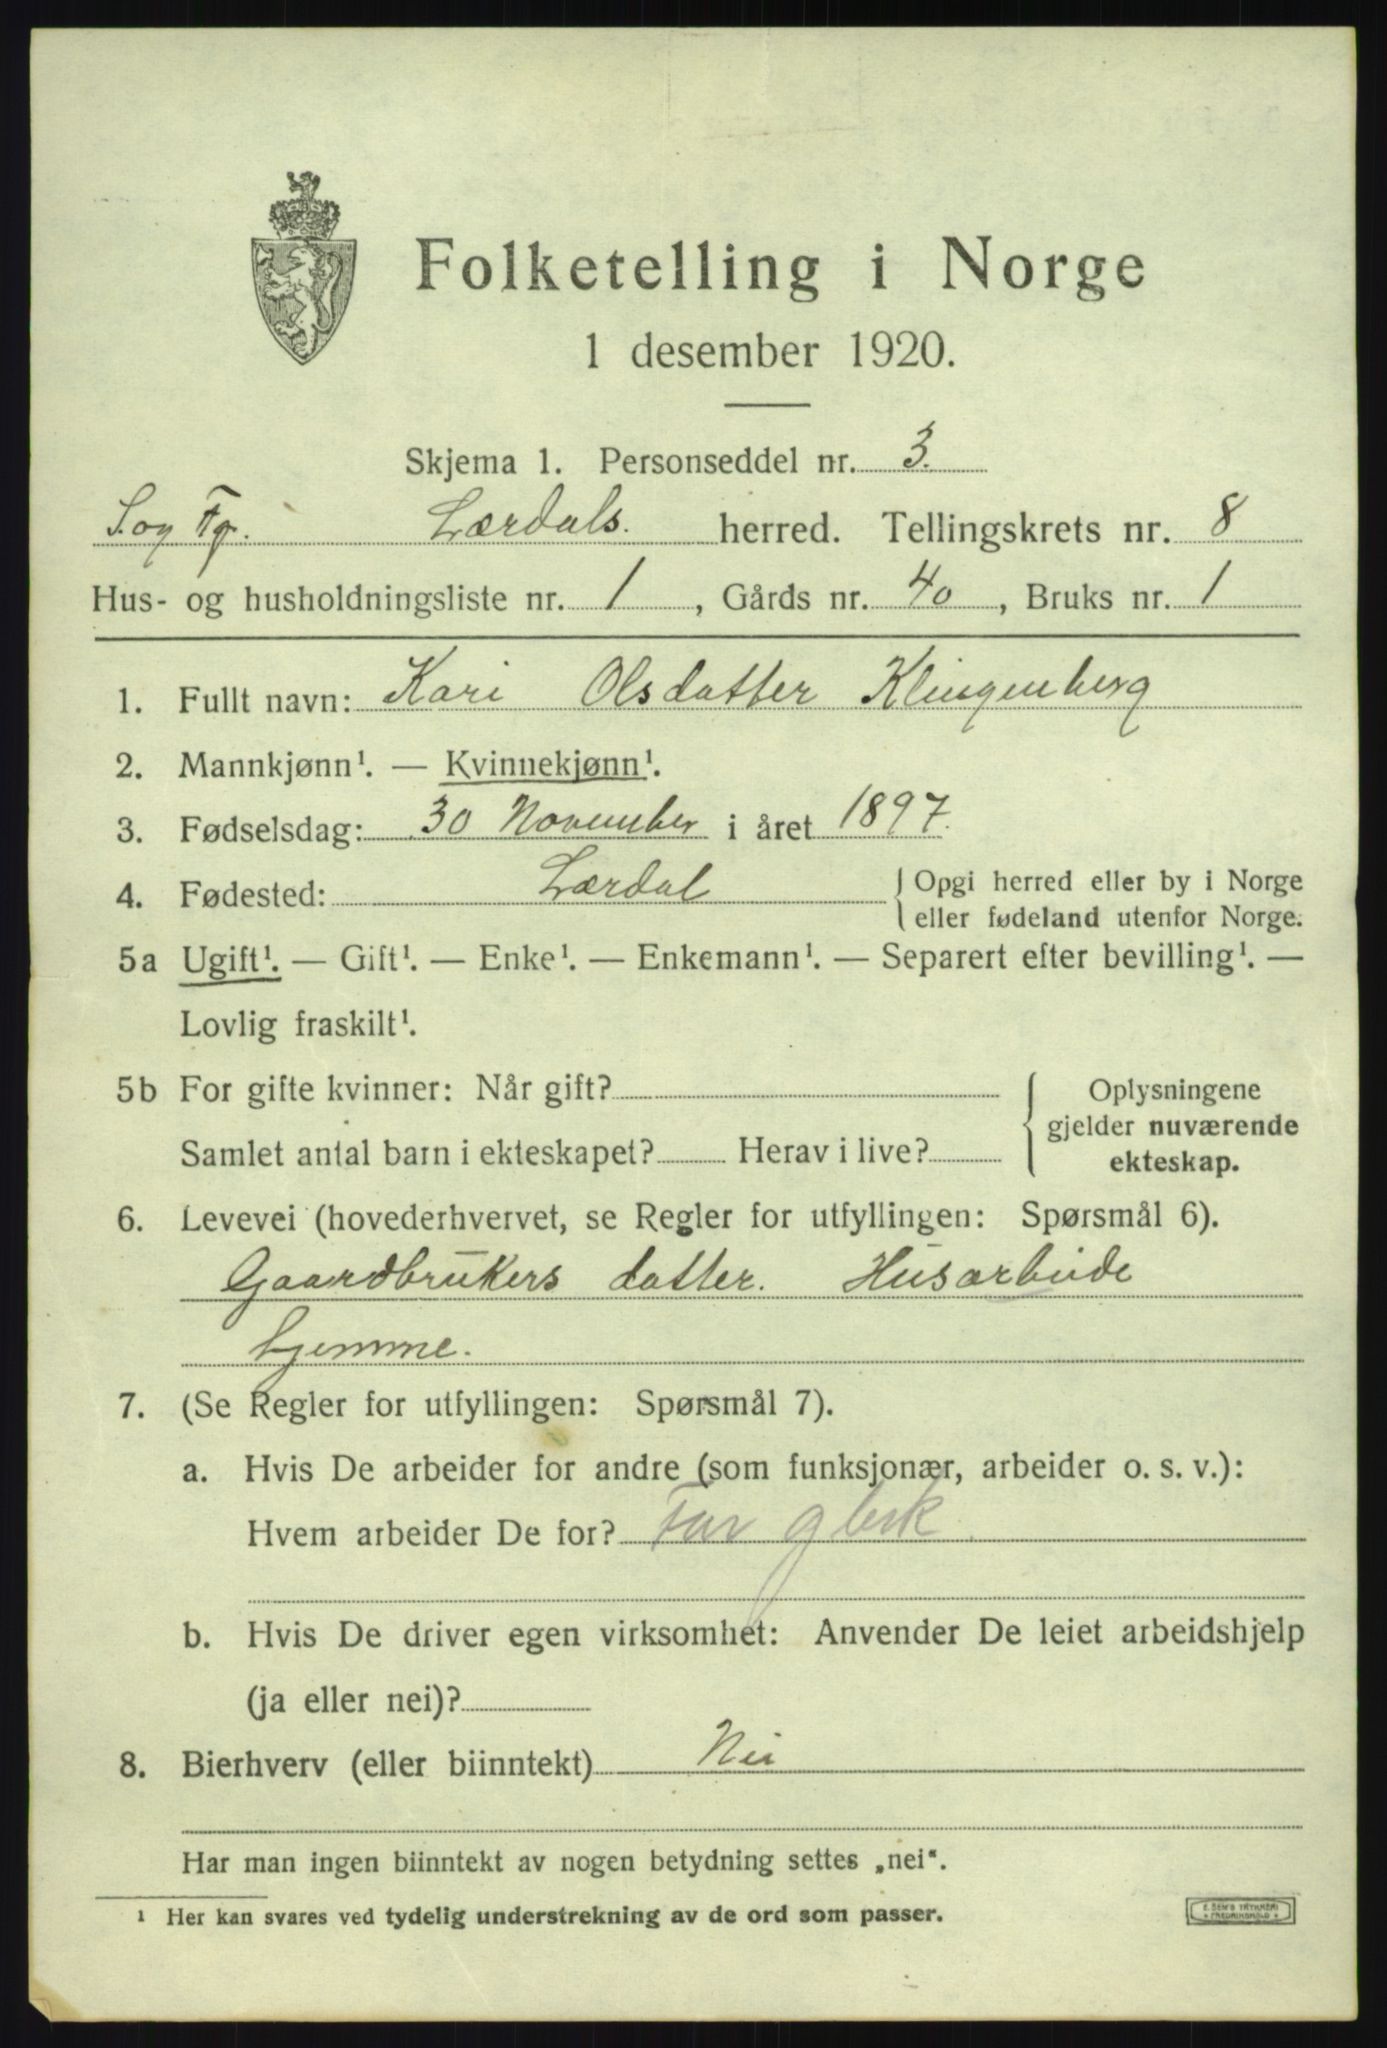 Folketelling i Norge
1 desember 1920.
Skjema 1. Personseddel nr. 3.
S. og Fj. Lærdals. herred. Tellingskrets nr. 8
Hus- og husholdningsliste nr. 1, Gårds nr. 40, Bruks nr. 1
1. Fullt navn: Kari Olsdatter Klingenberg
2. Mannkjønn¹. — Kvinnekjønn¹.
3. Fødselsdag: 30 November i året 1897.
4. Fødested: Lærdal { Opgi herred eller by i Norge
eller fødeland utenfor Norge.
5a Ugift¹. — Gift¹. — Enke¹. — Enkemann¹. — Separert efter bevilling¹. —
Lovlig fraskilt¹.
5b For gifte kvinner: Når gift? { Oplysningene
gjelder nuværende
Samlet antal barn i ekteskapet? Herav i live?
ekteskap.
6. Levevei (hovederhvervet, se Regler for utfyllingen: Spørsmål 6).
Gaardbrukers datter. Husarbeide
hjemme.
7. (Se Regler for utfyllingen: Spørsmål 7).
a. Hvis De arbeider for andre (som funksjonær, arbeider o. s. v.):
Hvem arbeider De for? Far gbrk
b. Hvis De driver egen virksomhet: Anvender De leiet arbeidshjelp
(ja eller nei)?
8. Bierhverv (eller biinntekt) Nei
Har man ingen biinntekt av nogen betydning settes „nei“.
¹ Her kan svares ved tydelig understrekning av de ord som passer.
E. SEM'S TRYKKERI
FREDRIKSHALD